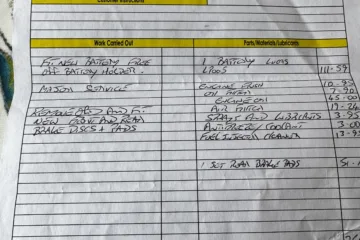 Customer Instructions
Work Carried Out
Parts/Materials/Lubricants
FIT NEW BATTERY FREE
OFF BATTERY HOLDER.
1 BATTERY
111-59
MAJOR SERVICE
ENGINE FLUSH
OIL FILTER
7-90
ENGINE OIL
45-00
AIR FILTER
REMOVE AND FIT
NEW FRONT AND REAR
BRAKE DISCS & PADS
SPRAYS AND LUBRICANTS
3-95
ANTIFREEZE COOLANT
3-00
FUEL INJECTOR CLEANER
13-95
1 SET REAR BRAKE PADS